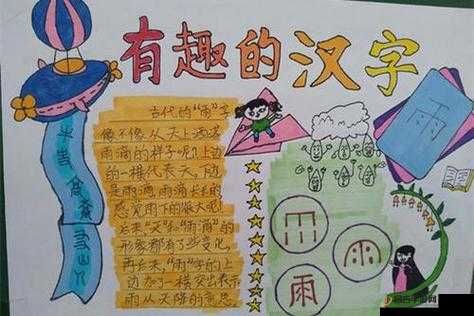 有趣的汉字
古代的"雨"字
像不像从天上洒落
雨滴的样子呢?上边
的一横代表天,下边
是雨滴,雨滴长长的
感觉雨下的很大呢!
后来"天"和"雨滴"的
形象都有了些变化,
再后来,"雨"字的上
边加了一横突出表示
雨从天降的意思。
雨
雨